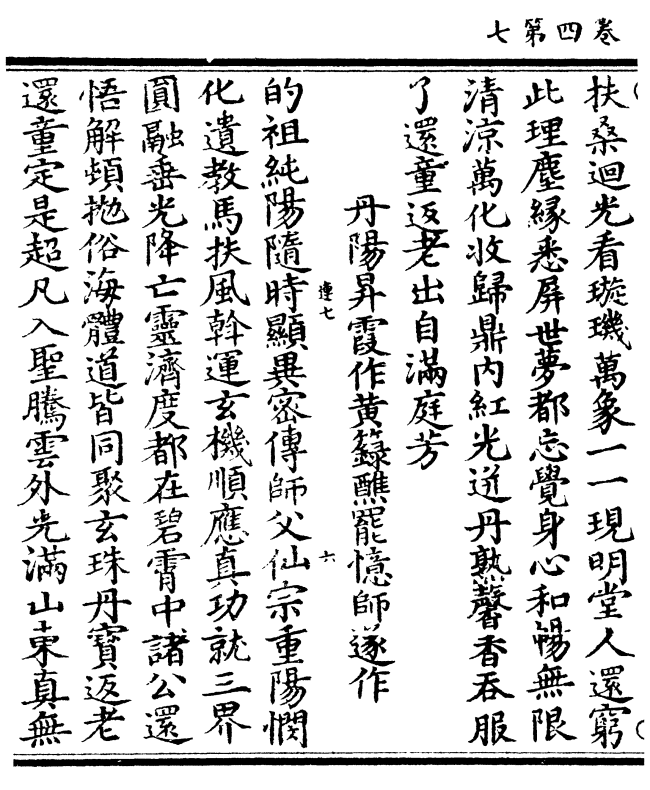 卷四第七
扶桑迴光看璇璣萬象一一現明堂人還窮
此理塵緣悉屏世夢都忘覺身心和暢無限
清涼萬化收歸鼎內紅光迸丹熟馨香吞服
了還童返老出自滿庭芳
丹陽昇霞作黃籙醮罷憶師遂作
的祖純陽隨時顯異密傳師父仙宗重陽憫
連七
六
化遺教馬扶風斡運玄機順應真功就三界
圓融垂光降亡靈濟度都在碧霄中諸公還
悟解頓拋俗海體道皆同聚玄珠丹寶返老
還童定是超凡入聖騰雲外光滿山東真無